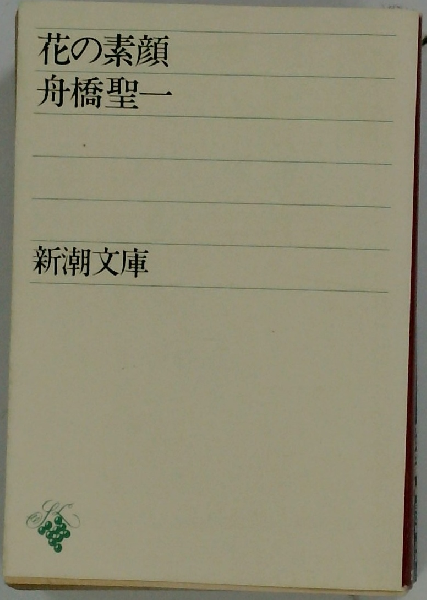 花の素顔
舟橋聖一
新潮文庫